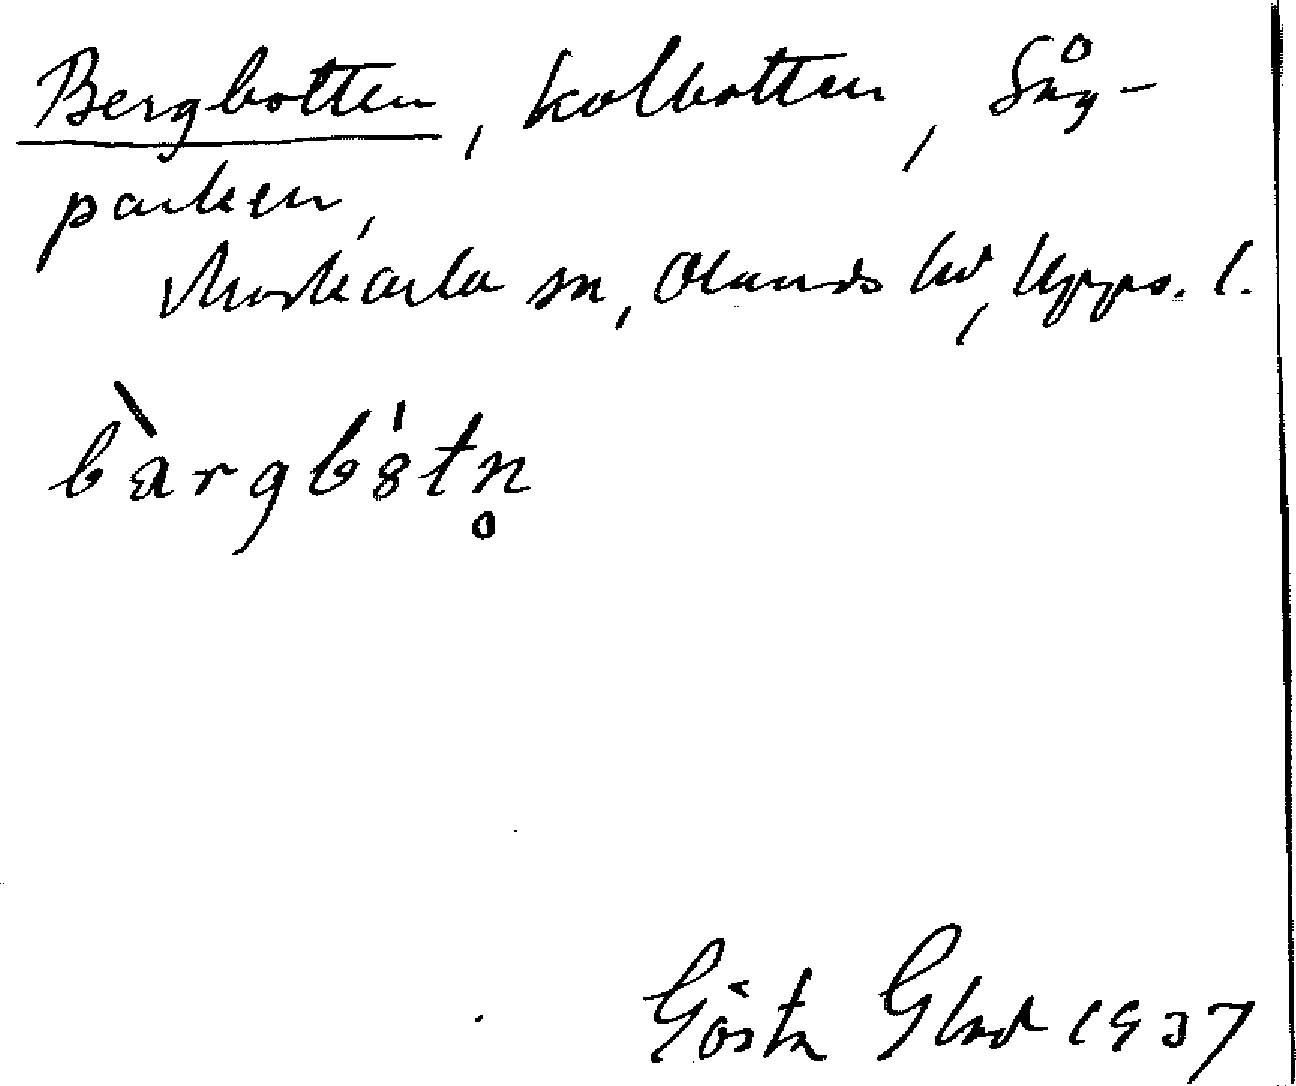 Bergbotten, kolbotten, Såg-
parken,
Morkarla sn, Olands hd, Upps. l.
bàrgbȣ̍tn̥
Gösta Glad 1937